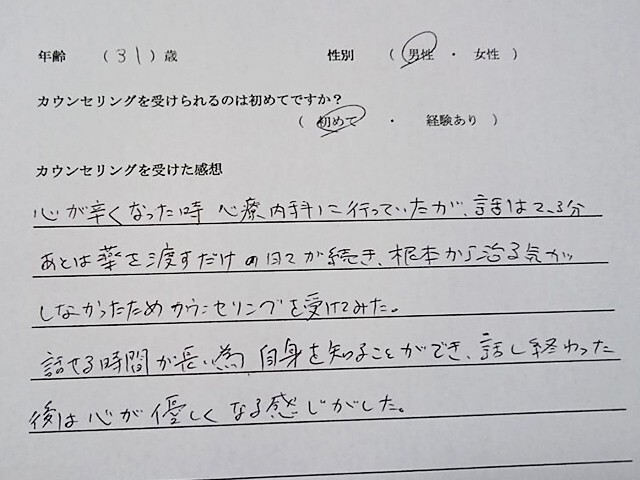 年齢 （ 31 ）歳 性別 （ 男性 ・ 女性 ）
カウンセリングを受けられるのは初めてですか？
（ 初めて ・ 経験あり ）
カウンセリングを受けた感想
心が辛くなった時 心療内科に行っていたが、話は2、3分
あとは薬を渡すだけの日々が続き、根本から治る気が
しなかったためカウンセリングを受けてみた。
話せる時間が長い為 自身を知ることができ、話し終わった
後は心が優しくなる感じがした。